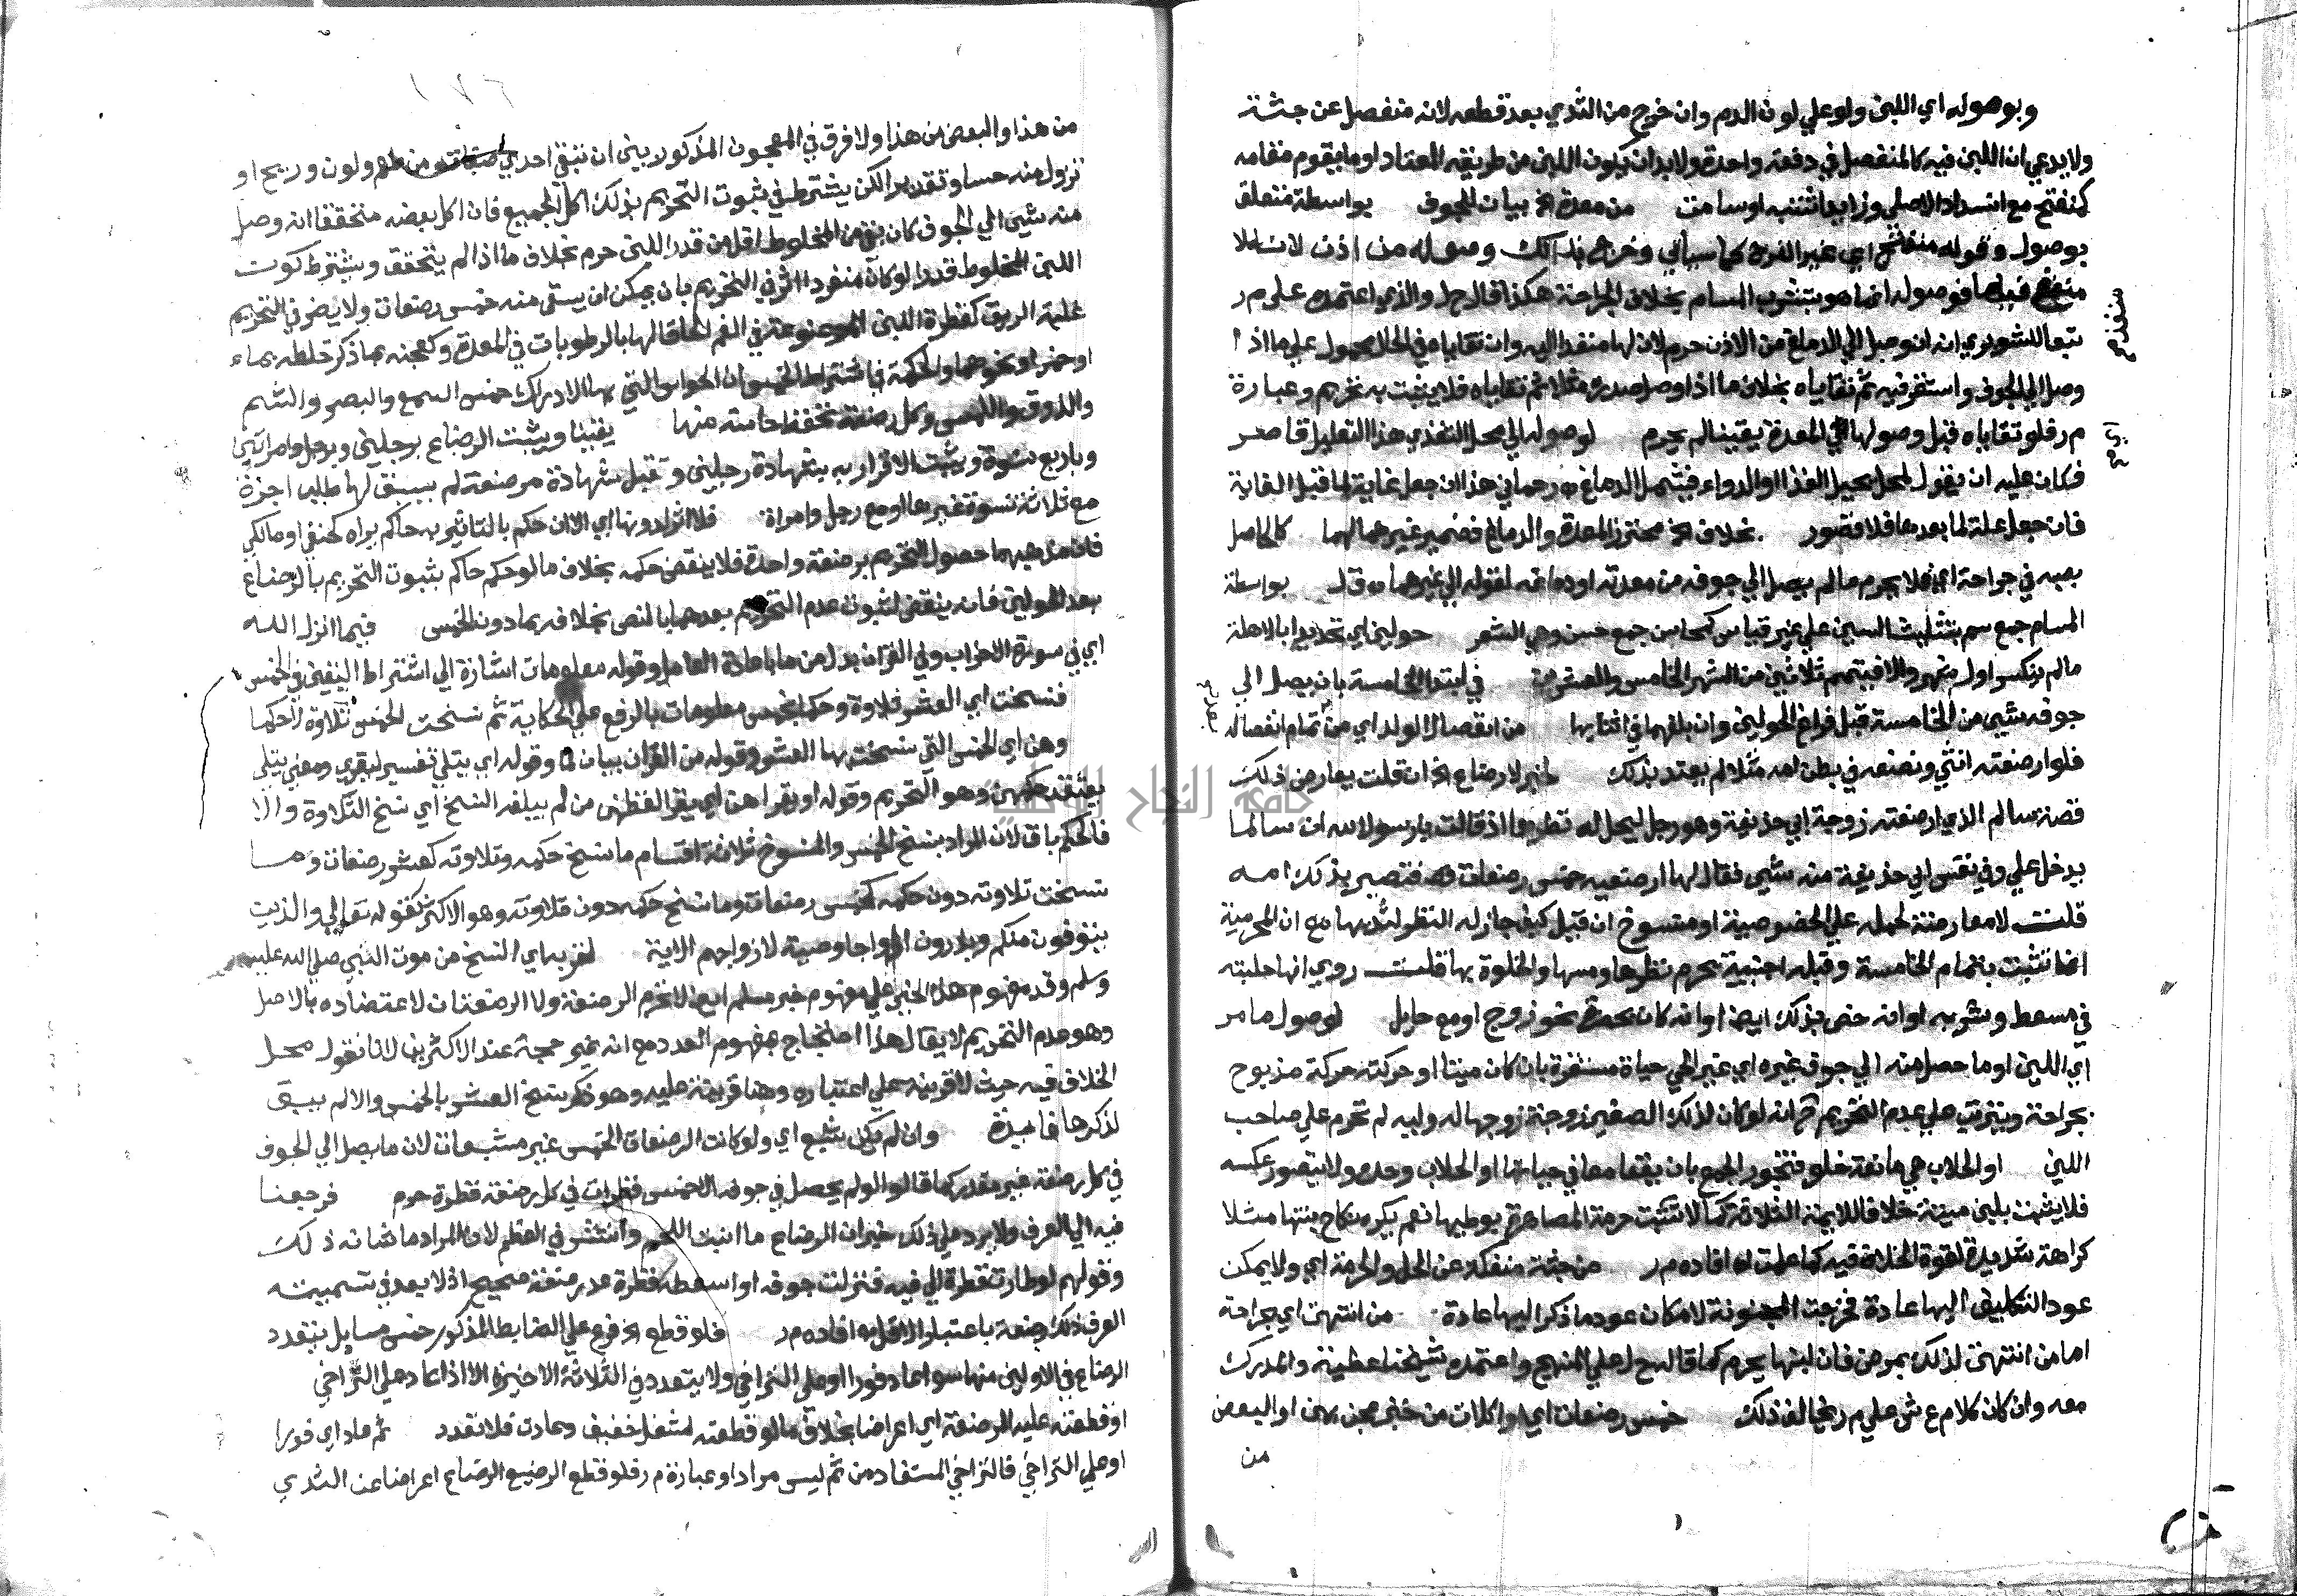 وبوصوله اي اللبن ولو علي لون الدم وان خرج من الثدي بعد قطعه لانه منفصل عن جثة
ولا يدعي ان اللبن فيه كالمنفصل في دفعة واحدة ولا بد ان يكون اللبن من طريقه المعتاد او ما يقوم مقامه
كمنفتح مع انسداد الاصلي وزايد اشتبه او سامت من معدة الخ بيان للجوف بواسطة متعلق
بوصول وقوله منفتح اي غير الفرج كما سياتي وخرج بذلك وصوله من اذن لانه لا
منفتح فيها فوصوله انما هو بتشرب المسام بخلاف الجراحة هكذا قال ح ل والذي اعتمده علي م ر
منفذ م
تبعا للشوبري انه ان وصل الي الدماغ من الاذن حرم لان لها منفذا اليه وان تقاياه في الحال محمول علي ما اذا
وصل الي الجوف واستقر فيه ثم تقاياه بخلاف ما اذا وصل صدره مثلا ثم تقاياه فلا يثبت به تحريم وعبارة
م ر فلو تقاياه قبل وصولها الي المعدة يقينا لم يحرم لوصوله الي محل التغذي هذا التعليل قاصر
فكان عليه ان يقول لمحل يحيل الغذا او الدواء فيشمل الدماغ رحماني هذا ان جعل غاية لما قبل الغاية
فان جعل علة لما بعدها فلا قصور بخلاف الخ محترز المعدة والدماغ فضمير غيرهما لهما كالحاصل
بصبه في جراحة اي فلا يحرم ما لم يصل الي جوفه من معدته او دماغه لقوله الي غيرهما ق ل بواسطة
المسام جمع سم بتثليث السين علي غير قياس كمحاسن جمع حسن وهي الشعر حولين اي تحديدا بالاهلة
ما لم ينكسر اول شهر والا فيتمم ثلاثين من الشهر الخامس والعشرين في ابتدا الخامسة بان يصل الي
جوفه شيي من الخامسة قبل فراغ الحولين وان بلغهما في اثنايها من انفصال الولد اي من تمام انفصاله
فلو ارضعته انثي ونصفه في بطن امه مثلا لم يعتد بذلك لخبر لا رضاع الخ ان قلت يعارض ذلك
قصة سالم الذي ارضعته زوجة ابي حذيفة وهو رجل ليحل له نظرها اذ قالت يا رسول الله ان سالما
يدخل علي وفي نفس ابي حذيفة منه شيي فقال لها ارضعيه خمس رضعات فتصير بذلك امه
قلت لا معارضة لحمله علي الخصوصية او منسوخ ان قيل كيف جاز له النظر لثديها مع ان المحرمية
انما تثبت بتمام الخامسة وقبله اجنبية يحرم نظرها ومسها والخلوة بها قلت روي انها حلبته
في مسعط وشربه او انه خص بذلك ايضا او انه كان بحضرة نحو زوج او مع حايل لوصول ما مر
اي اللبن او ما حصل منه الي جوف غيره اي غير الحي حياة مستقرة بان كان ميتا او حركته حركة مذبوح
بجراحة ويترتب علي عدم التحريم انه لو كان لذلك الصغير زوجة زوجها له وليه لم تحرم علي صاحب
اللبن او الحلاب هي مانعة خلو فتجوز الجمع بان يقعا معا في حياتها او الحلاب وحده ولا يتصور عكسه
فلا يثبت بلبن ميتة خلافا للايمة الثلاثة كما لا تثبت حرمة المصاهرة بوطيها نعم يكره نكاح بنتها مثلا
كراهة شديدة لقوة الخلاف فيه كما علمت افاده م ر من جثة منفكة عن الحل والحرمة اي ولا يمكن
عود التكليف اليها عادة فخرجت المجنونة لامكان عود ما ذكر اليها عادة من انتهت اي بجراحة
اما من انتهت لذلك بمرض فان لبنها يحرم كما قاله ح ل علي المنهج واعتمده شيخنا عطية والمدرك
معه وان كان كلام ع ش علي م ر يخالف ذلك خمس رضعات اي او اكلات من خبز عجن به او البعض
من
من هذا والبعض من هذا ولا فرق في المعجون المذكور بين ان تبقي احدي صفاته من طعم ولون وريح او
تزول منه حسا وتقديرا لكن يشترط في ثبوت التحريم بذلك اكل الجميع فان اكل بعضه متحققا انه وصل
منه شيي الي الجوف كان بقي من المخلوط اقل من قدر اللبن حرم بخلاف ما اذا لم يتحقق ويشترط كون
اللبن المخلوط قدرا لو كان منفردا اثر في التحريم بان يمكن ان يسقي منه خمس رضعات ولا يضر في التحريم
غلبة الريق كقطرة اللبن الموضوعة في الفم الحاقا لها بالرطوبات في المعدة وكعجنه بما ذكر خلطه بماء
او خمر او نحوهما والحكمة في اشتراط الخمس ان الحواس التي بها الادراك خمس السمع والبصر والشم
والذوق واللمس وكل رضعة تحفظ حاسة منها يقينا ويثبت الرضاع برجلين وبرجل وامراتين
وباربع نسوة ويثبت الاقرار به بشهادة رجلين وتقبل شهادة مرضعة لم يسبق لها طلب اجرة
مع ثلاثة نسوة غيرها او مع رجل وامراة فلا اثر لدونها اي الا ان حكم بالتاثير به حاكم يراه كحنفي او مالكي
فان مذهبهما حصول التحريم برضعة واحدة فلا ينقض حكمه بخلاف ما لو حكم حاكم بثبوت التحريم بالرضاع
بعد الحولين فانه ينقض لثبوت عدم التحريم بعدهما بالنص بخلافه بما دون الخمس فيما انزل الله
اي في سورة الاحزاب وفي القران بدل من ما باعادة العامل وقوله معلومات اشارة الي اشتراط اليقين في الخمس
فنسخت اي العشر تلاوة وحكما بخمس معلومات بالرفع علي الحكاية ثم نسخت الخمس تلاوة لا حكما
وهن اي الخمس التي نسخت بها العشر وقوله من القران بيان وقوله اي يتلي تفسير ليقري ومعني يتلي
يعتقد حكمهن وهو التحريم وقوله او يقرا هن اي يقرا لفظهن من لم يبلغه النسخ اي نسخ التلاوة والا
فالحكم باق لان المراد بنسخ الخمس والمنسوخ ثلاثة اقسام ما نسخ حكمه وتلاوته كعشر رضعات وما
نسخت تلاوته دون حكمه كخمس رضعات وما نسخ حكمه دون تلاوته وهو الاكثر كقوله تعالي والذين
يتوفون منكم ويذرون ازواجا وصية لازواجهم الاية لقربه اي النسخ من موت النبي صلي الله عليه
وسلم وقدم مفهوم هذا الخبر علي مفهوم خبر مسلم ايضا لا تحرم الرضعة ولا الرضعتان لاعتضاده بالاصل
وهو عدم التحريم لا يقال هذا احتجاج بمفهوم العدد مع انه غير حجة عند الاكثرين لانا نقول محل
الخلاف فيه حيث لا قرينة علي اعتباره وهنا قرينة عليه وهو ذكر نسخ العشر بالخمس والا لم يبق
لذكرها فايدة وان لم يكن يشبع اي ولو كانت الرضعات الخمس غير مشبعات لان ما يصل الي الجوف
في كل رضعة غير مقدر كما قالوا لو لم يحصل في جوفه الا خمس قطرات في كل رضعة قطرة حرم فرجعنا
فيه الي العرف ولا يرد علي ذلك خبر ان الرضاع ما انبت اللحم وانتشر في العظم لان المراد ما شانه ذلك
وقولهم لو طارت قطرة الي فيه فنزلت جوفه او اسعطه قطرة عد رضعة صحيح اذ لا يعد في تسميته
العرف ذلك رضعة باعتبار الاقل افاده م ر فلو قطع الخ فرع علي الضابط المذكور خمس مسايل يتعدد
الرضاع في الاوليين منها سوا عاد فورا او علي التراخي ولا يتعدد في الثلاثة الاخيرة الا اذا عاد علي التراخي
او قطعته عليه المرضعة اي اعراضا بخلاف ما لو قطعته لشغل خفيف وعادت فلا تعدد ثم عاد اي فورا
او علي التراخي فالتراخي المستفاد من ثم ليس مرادا وعبارة م ر فلو قطع الرضيع الرضاع اعراضا عن الثدي